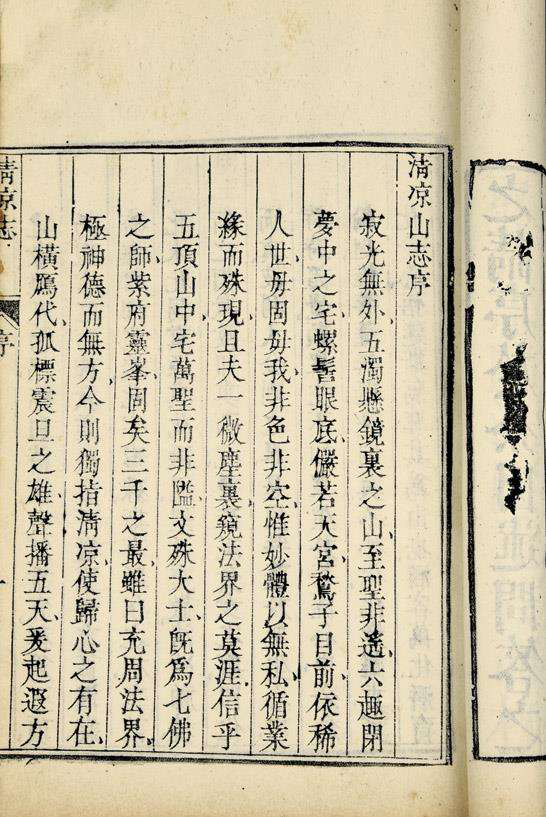 淸凉山志序
寂光無外五濁懸鏡裏之山至聖非遙六趣閉
夢中之宅螺髻眼底儼若天宮鶖子目前依稀
人世毋固毋我非色非空惟妙體以無私循業
緣而殊現且夫一微塵裏鏡法界之莫涯信乎
五頂山中宅萬聖而非隘文殊大士旣爲七佛
之師紫府靈峯固矣三千之最雖曰充周法界
極神德而無方今則獨指淸凉使歸心之有在
山橫鴈代孤標震旦之雄聲播五天爰起遐方
淸凉志 序 一